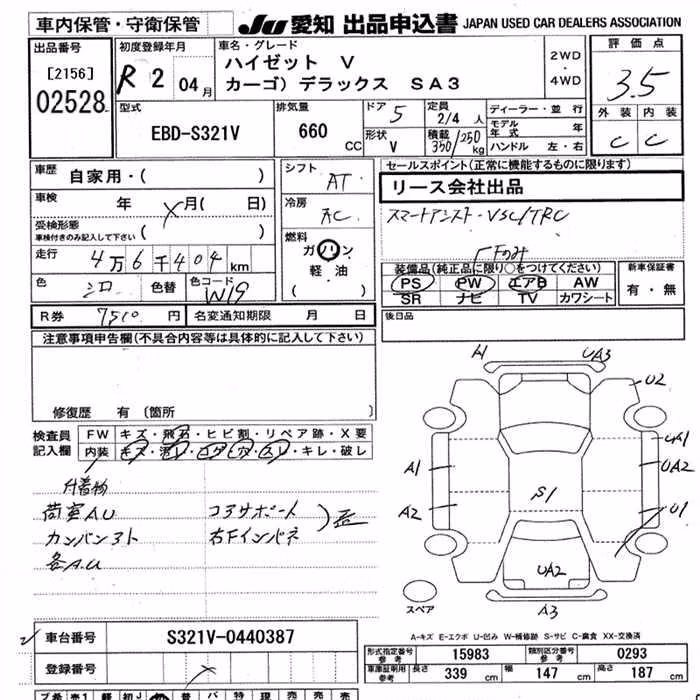 車内保管・守衛保管
JU 愛知 出品申込書 JAPAN USED CAR DEALERS ASSOCIATION
出品番号
[2156]
02528
初度登録年月
R 2 04月
車名・グレード
ハイゼット V
カーゴ) デラックス SA3
2WD
・
4WD
評価点
3.5
外装 内装
C C
型式
EBD-S321V
排気量
660 CC
ドア 5
形状 V
定員 2/4 人
積載 350/250 kg
ディーラー・並行
モデル年式 年
ハンドル 左・右
車歴 自家用・( )
車検 年 月( 日)
受検形態
車検付きのみ記入して下さい ( )
走行 4万6千404km
色 シロ 色替 色コード W19
R券 7510 円 名変通知期限 月 日
シフト AT
冷房 AC
燃料
ガソリン
軽油
( )
セールスポイント(正常に機能するものに限ります)
リース会社出品
スマートアシスト・VSC/TRC
Fのみ
装備品(純正品に限り○をつけてください)
PS PW エアB AW
SR ナビ TV カワシート
新車保証書
有・無
後日品
注意事項申告欄(不具合内容等は具体的に記入して下さい)
修復歴 有 〔箇所 〕
検査員記入欄
FW キズ・飛石・ヒビ割・リペア跡・X要
内装 キズ・汚レ・コゲ・穴・スレ・キレ・破レ
付着物
荷室AU コアサポート
カンバン 右Fインパネ
各A.U
A1 UA3
U2
UA1
A1 UA2
A2 S1 U1
UA2
スペア A3
A-キズ E-エクボ U-凹み W-補修跡 S-サビ C-腐食 XX-交換済
車台番号 S321V-0440387
登録番号
型式指定番号 参考 15983 類別区分番号 参考 0293
車庫証明用 参考 長さ 339 幅 147 高さ 187 cm